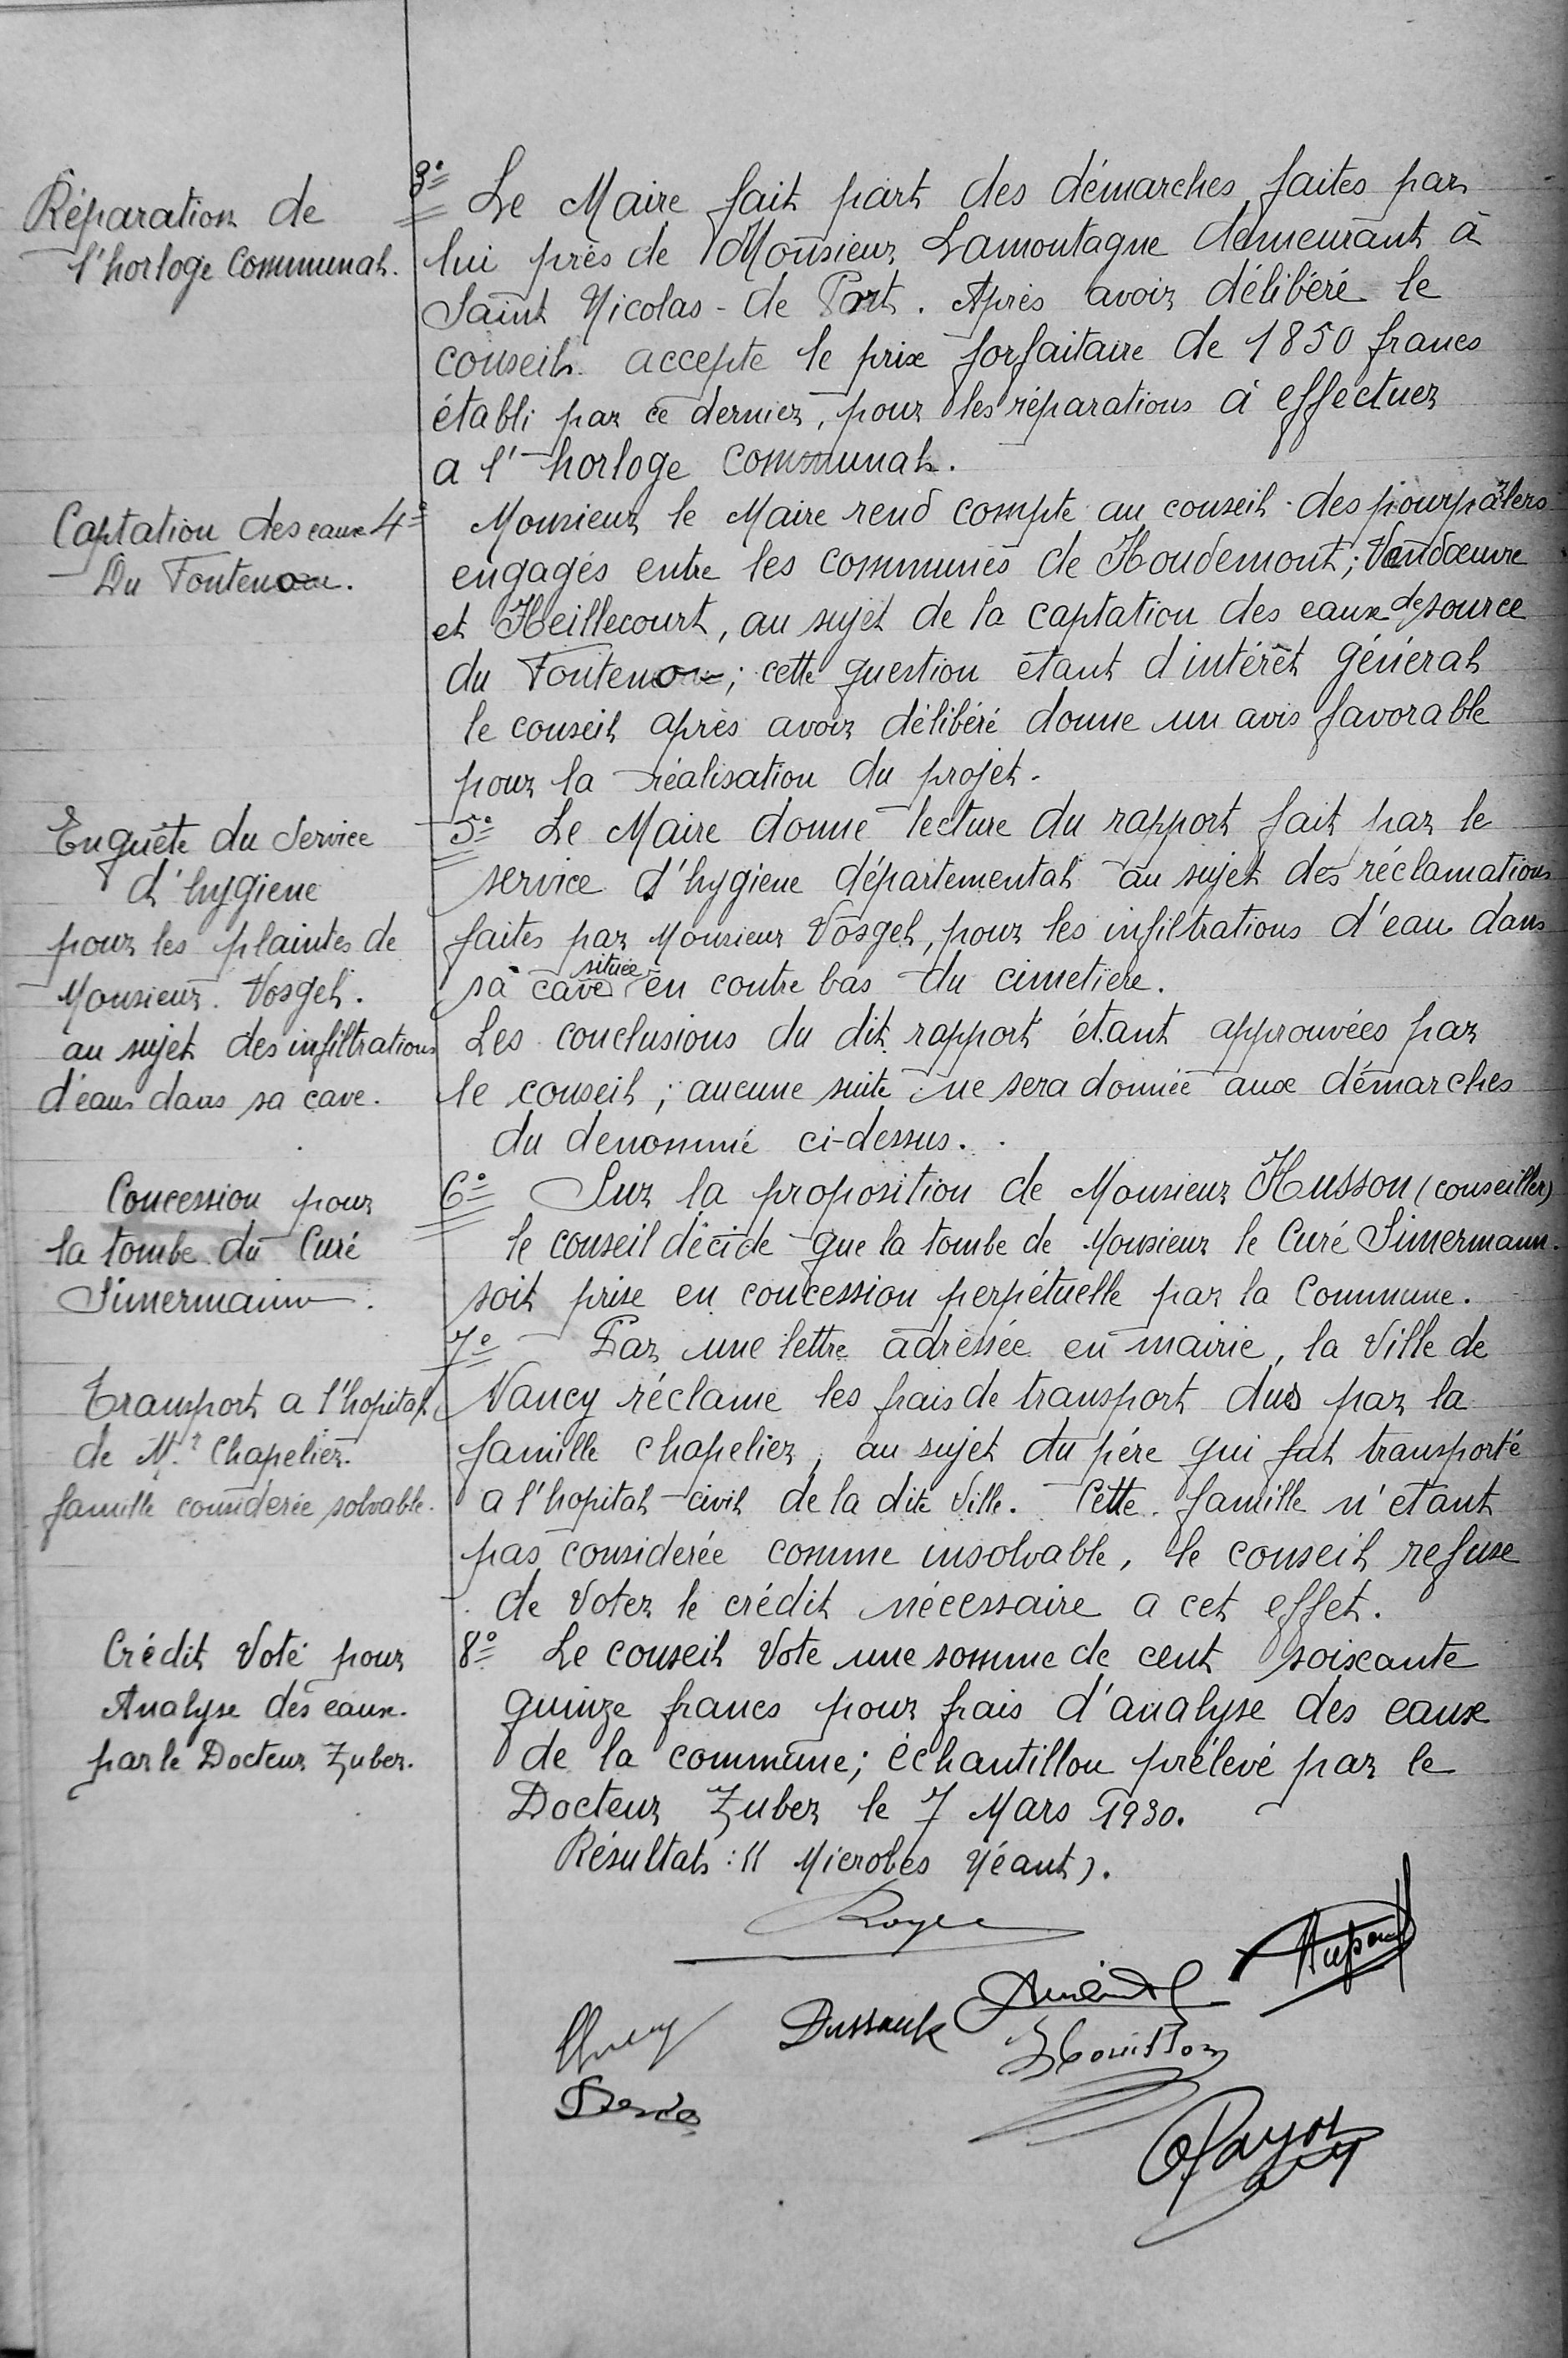 Réparation de
l'horloge Communal.
3° Le Maire fait part des démarches faites par
lui près de Monsieur Lamontagne demeurant à
Saint Nicolas-de Port. Après avoir délibéré le
conseil accepte le prix forfaitaire de 1850 francs
établi par ce dernier, pour les réparations à effectuer
a l'horloge communal.
Captation des eaux
Du Fontenou.
4° Monsieur le Maire rend compte au conseil des pourpalers
engagés entre les communes de Houdemont; Vandœuvre
et Heillecourt, au sujet de la captation des eaux de source
du Fontenou; cette question étant d'intérêt général
le conseil après avoir délibéré donne un avis favorable
pour la réalisation du projet.
Enquête du Service
d'hygiene
pour les plaintes de
Monsieur Vosgel.
au sujet des infiltrations
d'eau dans sa cave.
5° Le Maire donne lecture du rapport fait par le
service d'hygiene départemental au sujet des réclamations
faites par Monsieur Vosgel, pour les infiltrations d'eau dans
sa cave située en contre bas du cimetière.
Les conclusions du dit rapport étant approuvées par
le conseil; aucune suite ne sera donnée aux démarches
du denommé ci-dessus.
Concession pour
la tombe du Curé
Simermann.
6° Sur la proposition de Monsieur Husson (conseiller)
le conseil décide que la tombe de Monsieur le Curé Simermann.
soit prise en concession perpétuelle par la Commune.
Transport a l'hopital
de Mr Chapelier.
famille considerée solvable.
7° Par une lettre adressée en mairie, la Ville de
Nancy réclame les frais de transport dus par la
famille chapelier, au sujet du père qui fut transporté
a l'hopital civil de la dite Ville. Cette famille n'etant
pas considerée comme insolvable, le conseil refuse
de Voter le crédit nécessaire a cet effet.
Crédit Voté pour
Analyse des eaux.
par le Docteur Zuber.
8° Le conseil Vote une somme de cent soixante
quinze francs pour frais d'analyse des eaux
de la commune; échantillon prélevé par le
Docteur Zuber le 7 Mars 1930.
Résultats: (( Microbes Néant).
Royer
Houillon